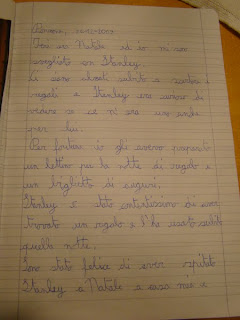 Oggi è Natale ed io mi sono
svegliato con Stanley.
Ci siamo alzati subito e
regali e Stanley era curioso di
vedere se ce n'era uno anche
per lui.
Per fortuna io gli avevo preparato
un lettino per la notte di regalo e
un biglietto di auguri.
Stanley è stato contentissimo di aver
trovato un regalo e l'ha usato subito
quella notte.
Sono stato felice di aver ospitato
Stanley a Natale a casa mia e